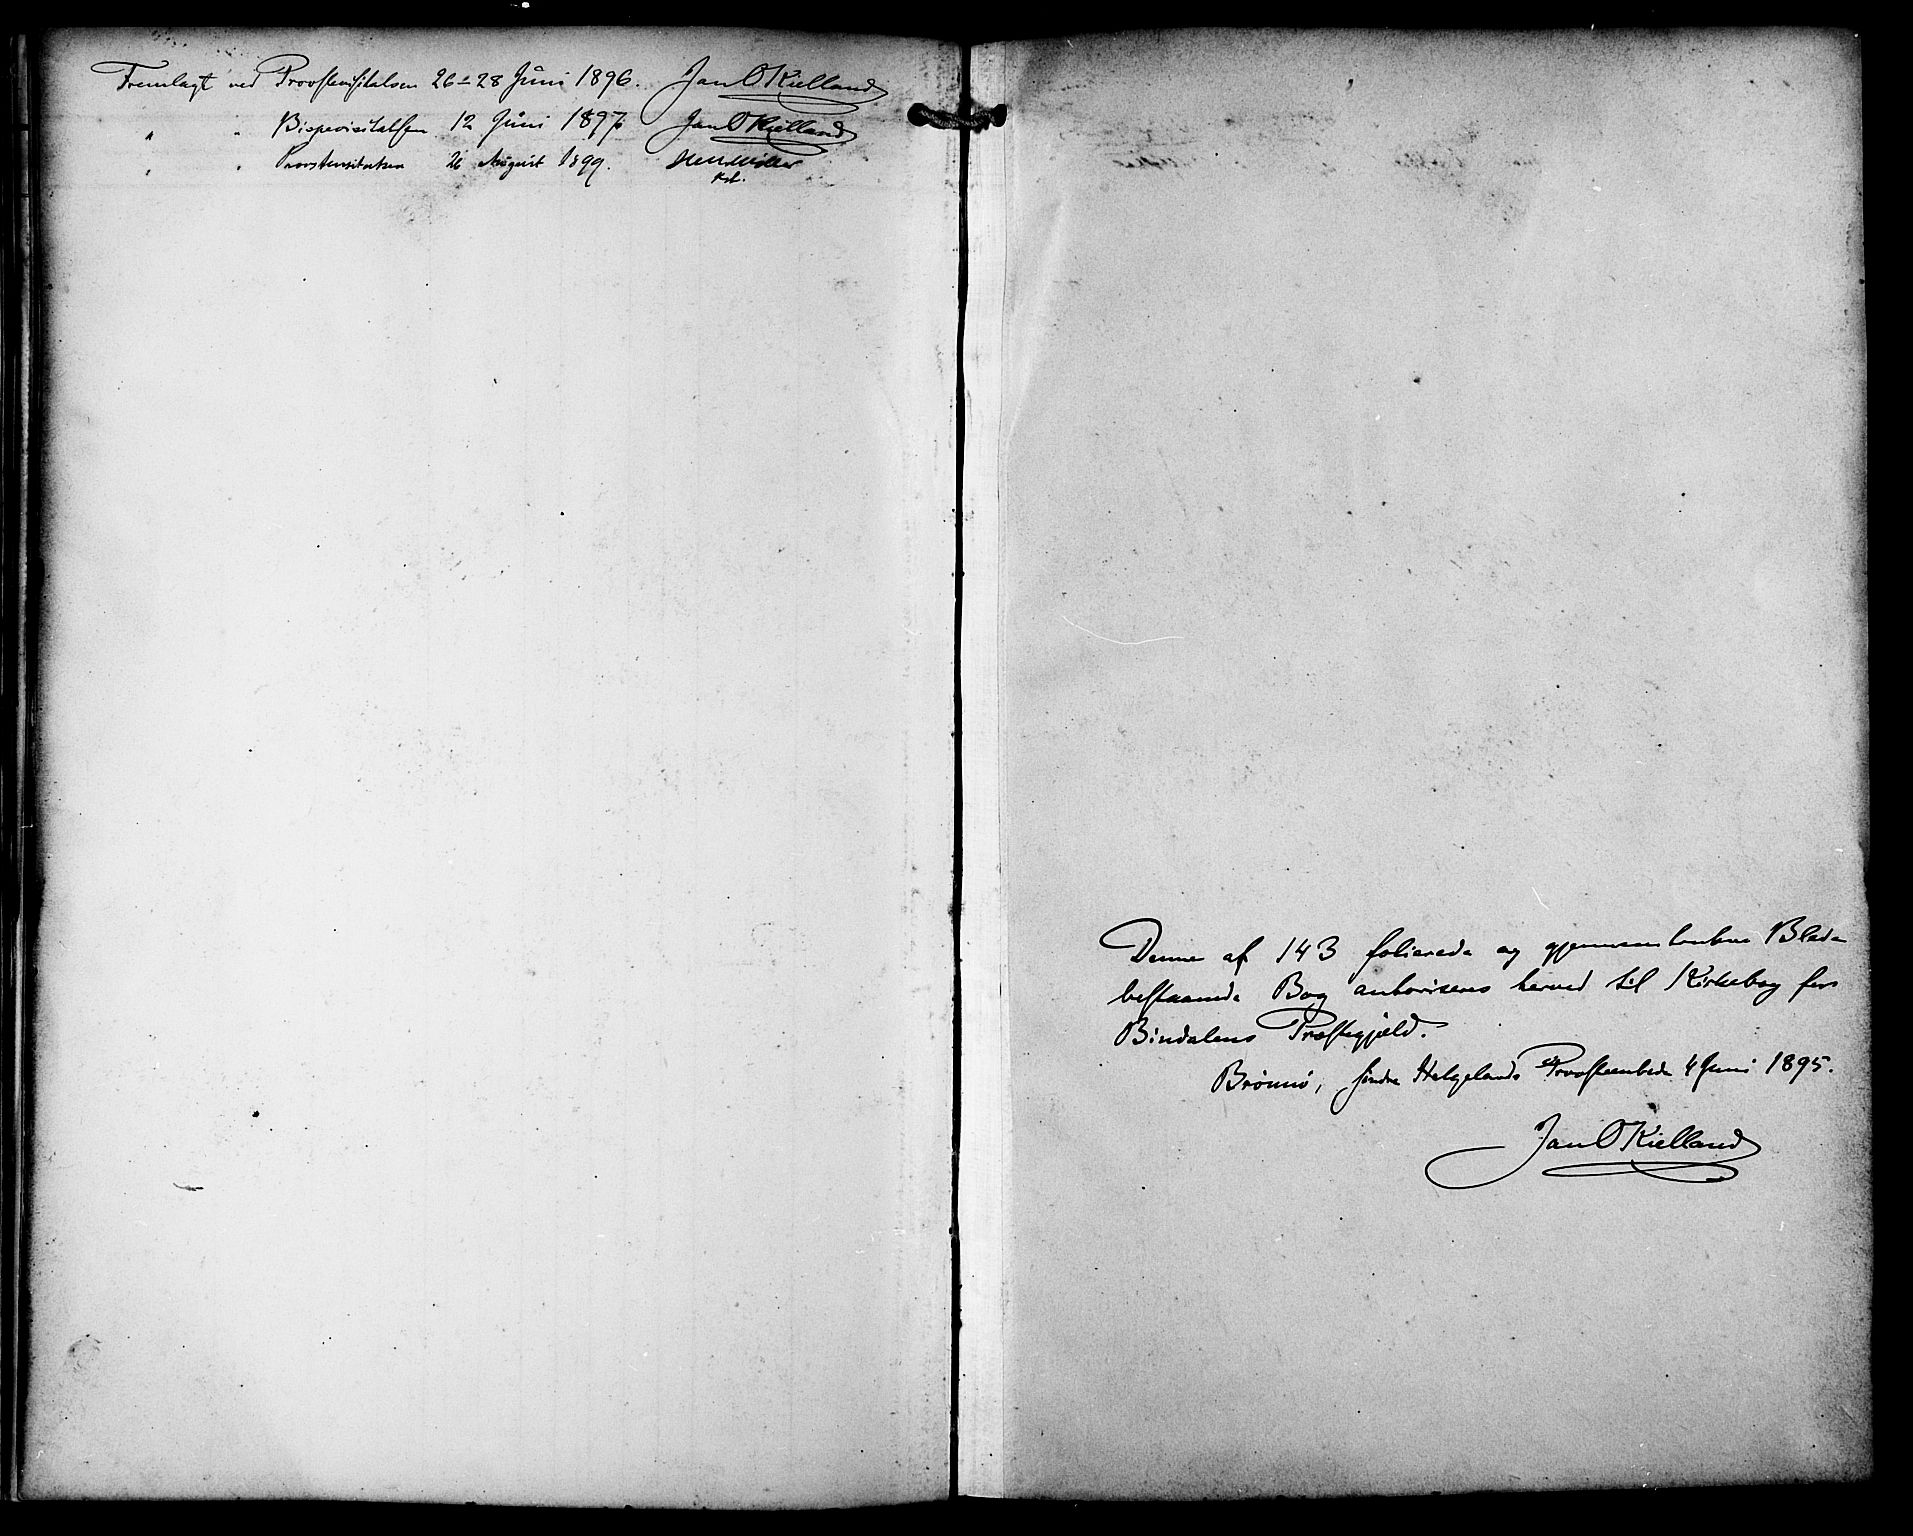 Fremlagt ved Provstevisitatsen 26-28 Juni 1896. Jan O Kielland
" " Bispevisitatsen 12 Juni 1897. Jan O Kielland
" " Provstevisitatsen 26 August 1899.
kst.
Denne af 143 folierede og gjennemtrukne Blade
bestaaende Bog autoriseres herved til Kirkebog for
Bindalens Præstegjæld.
Brønnø, søndre Helgelands Provsteembede 4 Juni 1895.
Jan O Kielland